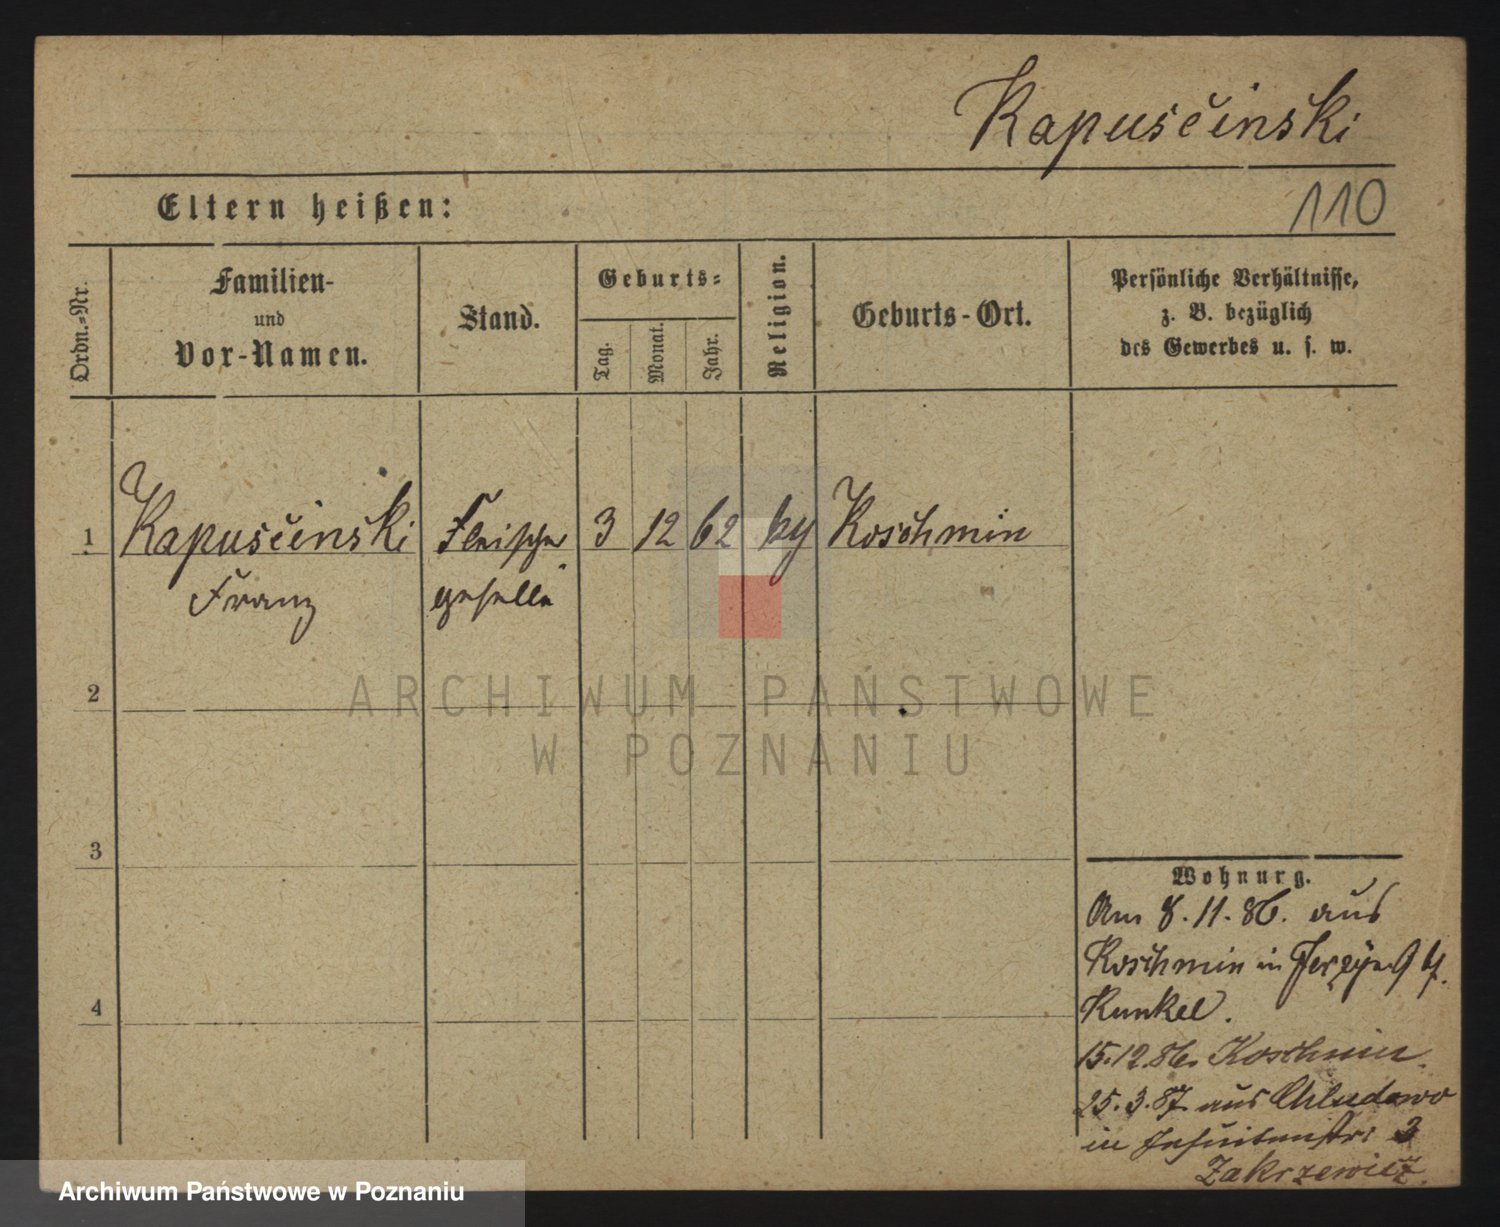 Kapuscinski
Eltern heißen:
110
Ordn.-Nr.
Familien-
und
Vor-Namen.
Stand.
Geburts-
Tag.
Monat.
Jahr.
Religion.
Geburts-Ort.
Persönliche Verhältnisse,
z. B. bezüglich
des Gewerbes u. s. w.
1 Kapuscinski Fleischer 3 12 62 Koschmin
Franz geselle
2
ARCHIWUM PAŃSTWOWE
W POZNANIU
3
Wohnung.
Am 8.11.86. aus
Koschmin in
Kunkel.
4
15.12.86. Koschmin.
25.3.87 aus Chludowo
in Jesuitenstr. 3
Zakrzewicz.
Archiwum Państwowe w Poznaniu